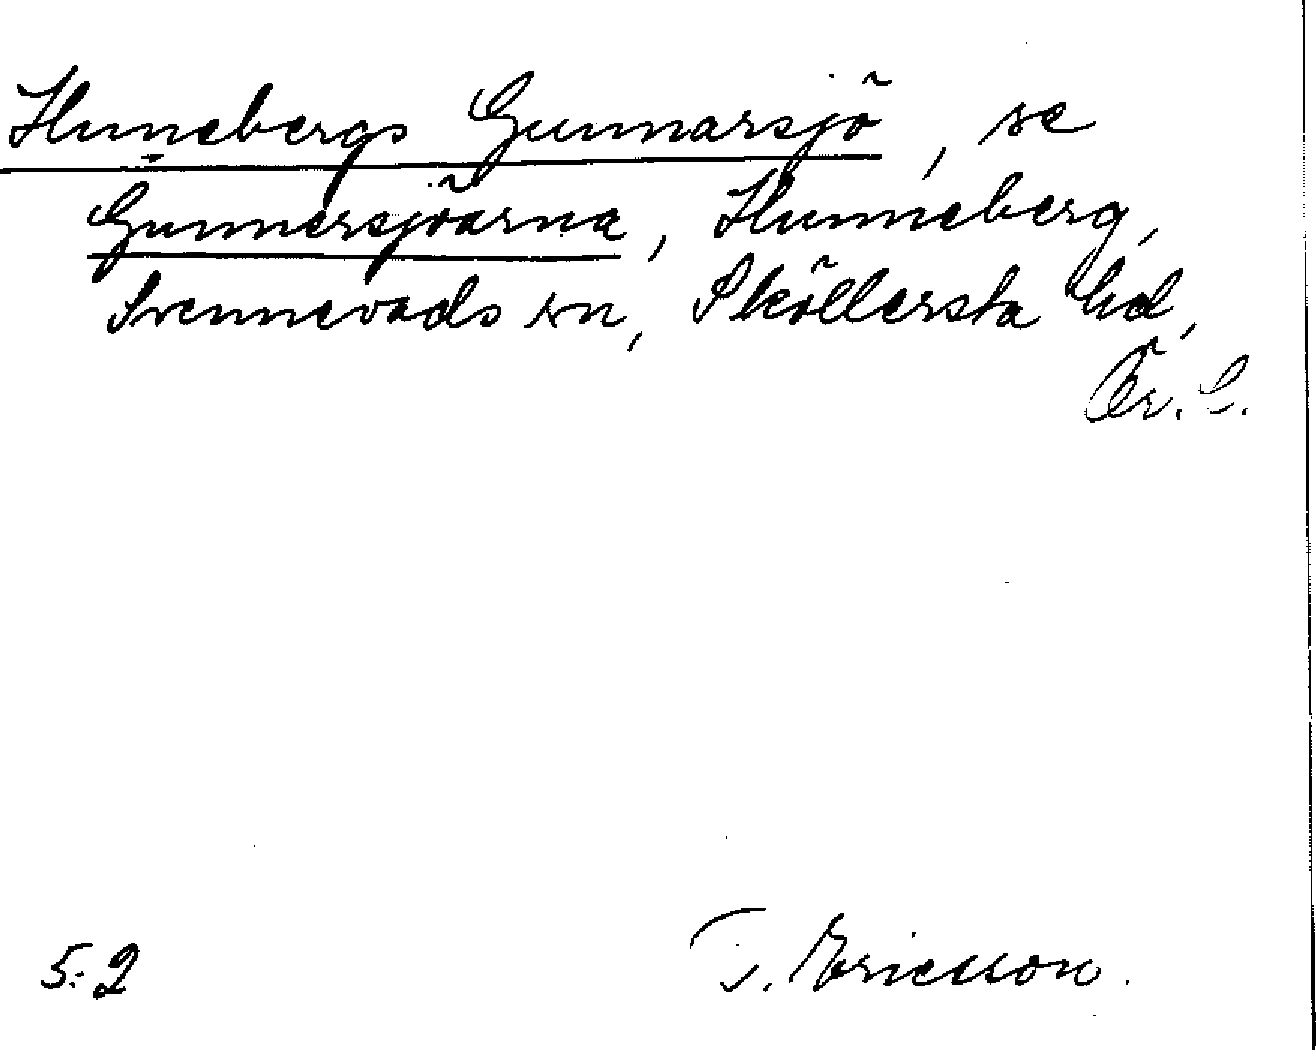 Hunebergs Gunnarsjö, se
Gunnersjöarna, Hunneberg,
Svennevads sn, Sköllersta hd,
Ör. l.
5:2
T. Ericsson.